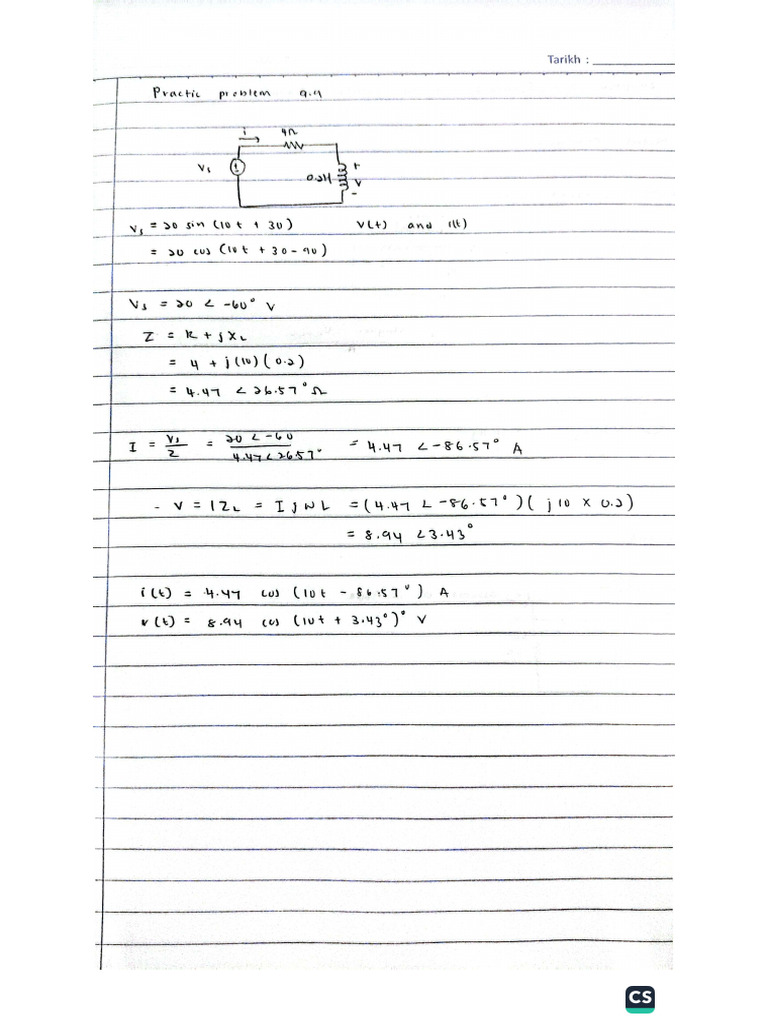 Tarikh :
Practic problem 9.9
i 4Ω
Vs 0.2H + V -
Vs = 20 sin (10t + 30) V(t) and i(t)
= 20 cos (10t + 30 - 90)
Vs = 20 < -60° V
Z = R + jXL
= 4 + j(10)(0.2)
= 4.47 < 26.57° Ω
I = Vs/Z = 20 < -60 / 4.47 < 26.57° = 4.47 < -86.57° A
- V = IZL = IjWL = (4.47 < -86.57°)( j10 x 0.2)
= 8.94 < 3.43°
i(t) = 4.47 cos (10t - 86.57°) A
v(t) = 8.94 cos (10t + 3.43°)° V
CS